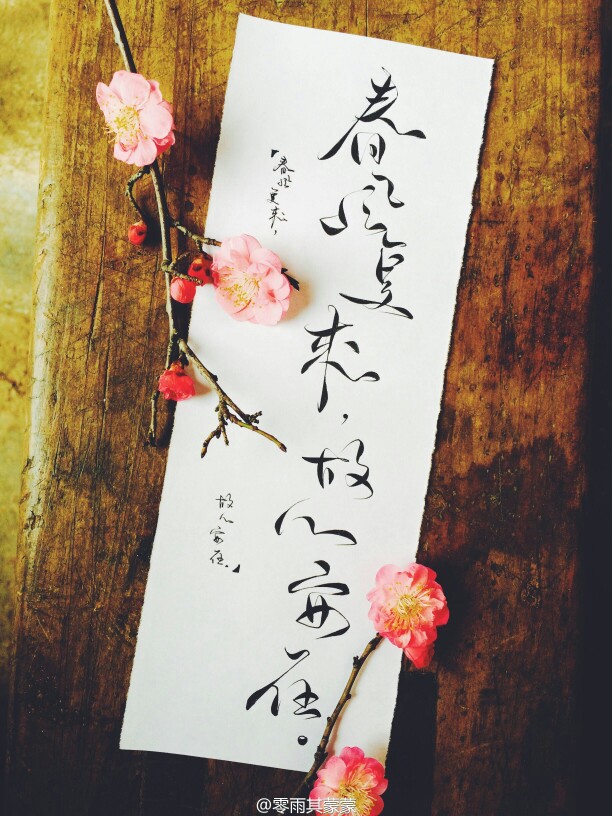 春风更来，故心安在。
「春风更来，
故心安在。」
@零雨其蒙蒙